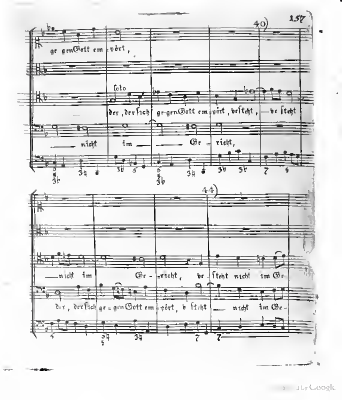 40) 157
ge gen Gott em = pört,
solo
der, der sich ge = gen Gott em = pört, besteht, — be steht
— nicht im — Ge — richt,
44)
— nicht im Ge - richt, be = steht nicht im Ge =
der, der sich ge = gen Gott em = pört, b steht — nicht im Ge =
Google